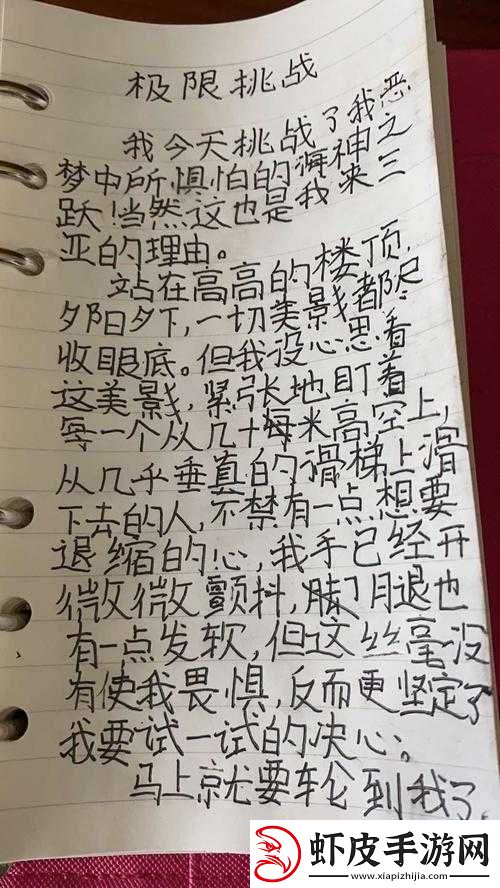 极限挑战
我今天挑战了我恶
梦中所惧怕的海神之
跃!当然这也是我来三
亚的理由。
站在高高的楼顶,
夕阳夕下,一切美影都尽
收眼底。但我没心思看
这美影,紧张地盯着
每一个从几十每米高空上,
从几乎垂真的滑梯上滑
下去的人,不禁有一点想要
退缩的心,我手已经开
微微颤抖,脚月退也
有一点发软,但这丝毫没
有使我畏惧,反而更坚定了
我要试一试的决心。
马上就要车仑到我了。
虾皮手游网
www.xiapizhijia.com